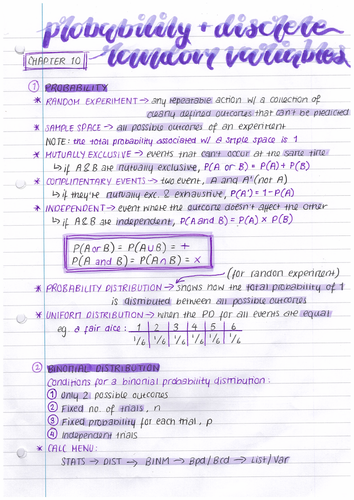 probability + discrete
random variables
CHAPTER 10
① PROBABILITY
* RANDOM EXPERIMENT → any repeatable action w/ a collection of
clearly defined outcomes that can't be predicted
* SAMPLE SPACE → all possible outcomes of an experiment
NOTE: the total probability associated w/ a sample space is 1
* MUTUALLY EXCLUSIVE → events that can't occur at the same time
↳ if A & B are mutually exclusive, P(A or B) = P(A) + P(B)
* COMPLIMENTARY EVENTS → two event, A and A' (not A)
↳ if they're mutually exc. & exhaustive, P(A') = 1 - P(A)
* INDEPENDENT → event where the outcome doesn't affect the other
↳ if A & B are independent, P(A and B) = P(A) × P(B)
P(A or B) = P(A ∪ B) = +
P(A and B) = P(A ∩ B) = ×
(for random experiment)
* PROBABILITY DISTRIBUTION → shows how the total probability of 1
is distributed between all possible outcomes
* UNIFORM DISTRIBUTION → when the PD for all events are equal
eg. a fair dice: 1 2 3 4 5 6
1/6 1/6 1/6 1/6 1/6 1/6
② BINOMIAL DISTRIBUTION
Conditions for a binomial probability distribution:
① Only 2 possible outcomes
② Fixed no. of trials, n
③ Fixed probability for each trial, p
④ Independent trials
* CALC MENU:
STATS → DIST → BINM → Bpd/Bcd → List/Var